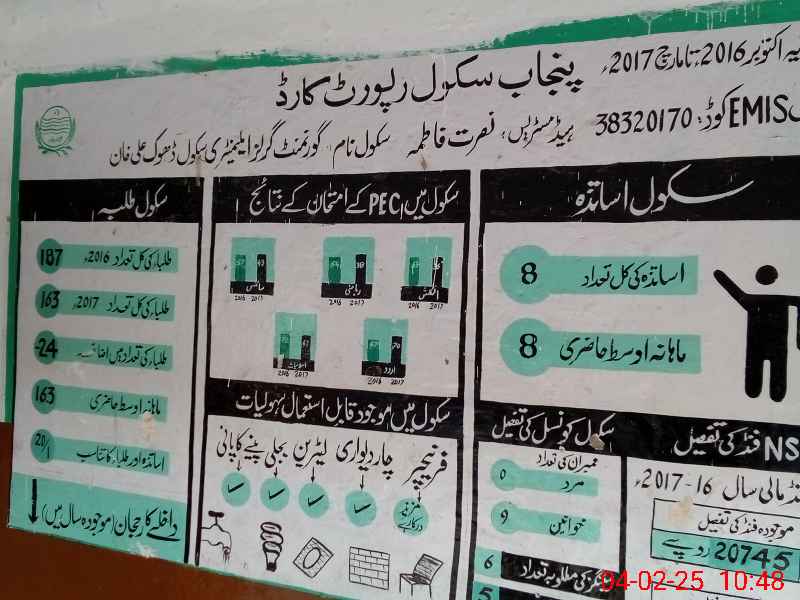 پنجاب سکول رپورٹ کارڈ اکتوبر 2016ء تا مارچ 2017ء
سکول نام گورنمنٹ گرلز ایلیمنٹری سکول ڈھوک علی خان ہیڈمسٹریس: نصرت فاطمہ EMIS کوڈ: 38320170
سکول اساتذہ
اساتذہ کی کل تعداد 8
ماہانہ اوسط حاضری 8
سکول میں PEC کے امتحان کے نتائج
انگلش 2016 2017
ریاضی 2016 2017
سائنس 2016 2017
اردو 2016 2017 67 70
اسلامیات 2016 2017
سکول طلبہ
طلباء کی کل تعداد 2016ء 187
طلباء کی کل تعداد 2017ء 163
طلباء کی تعداد میں اضافہ -24
ماہانہ اوسط حاضری 163
اساتذہ اور طلباء کا تناسب 20/1
داخلے کا رجحان (موجودہ سال میں)
سکول میں موجود قابل استعمال سہولیات
فرنیچر چاردیواری لیٹرین بجلی پینے کا پانی
مزید درکار ہے
سکول کونسل کی تفصیل
ممبران کی تعداد
مرد 0
خواتین 9
کی مطلوبہ تعداد 6
5
NS فنڈ کی تفصیل
مالی سال 16-2017ء
موجودہ فنڈ کی تفصیل
20745 روپے
04-02-25 10:48